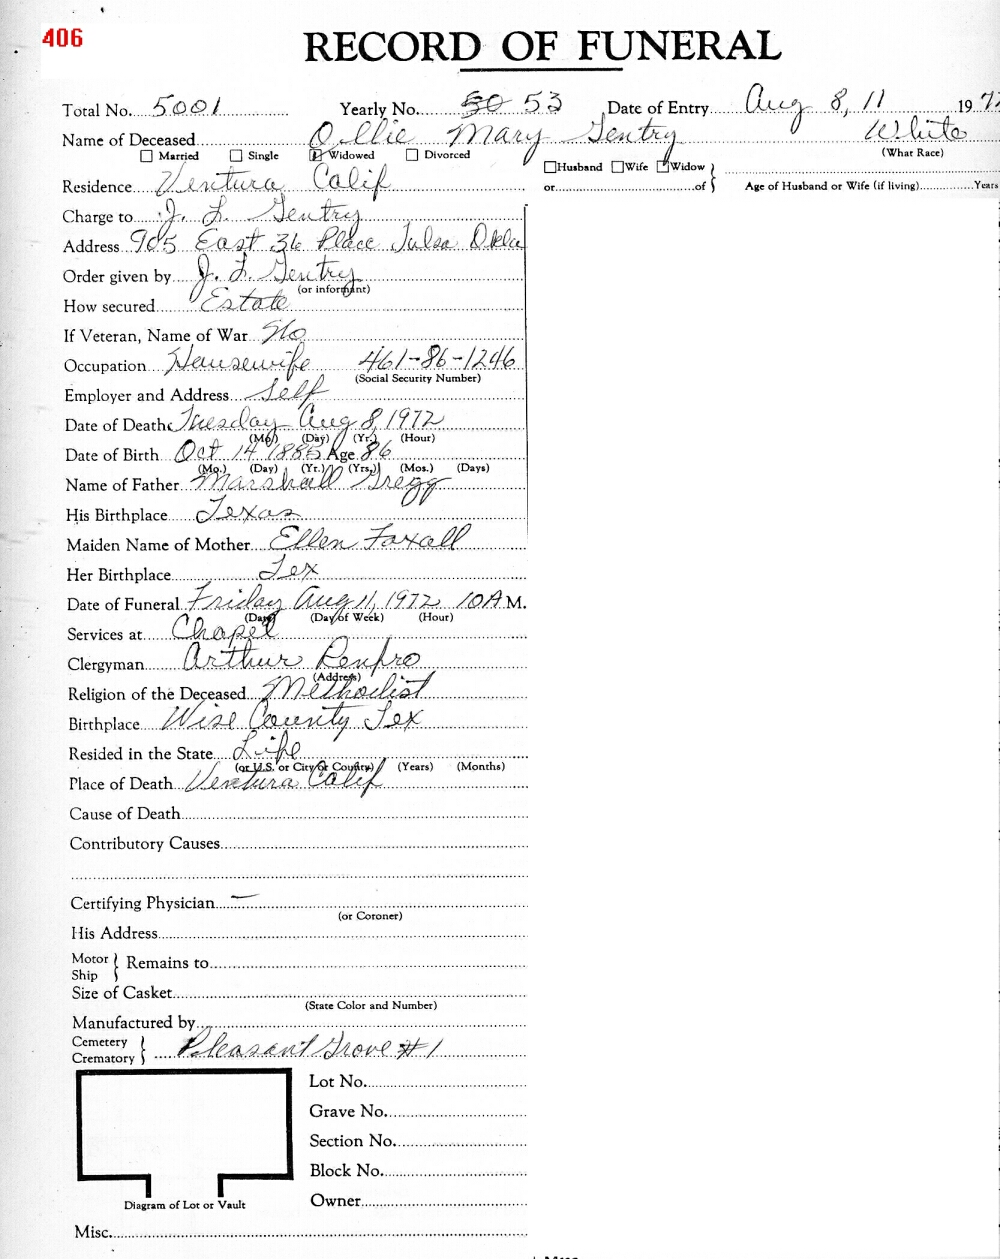 406
RECORD OF FUNERAL
Total No. 5001 Yearly No. 50 53 Date of Entry Aug 8, 11 1972
Name of Deceased Ollie Mary Gentry White
Married Single Widowed Divorced (What Race)
Husband Wife Widow
Residence Ventura Calif or of Age of Husband or Wife (if living) Years
Charge to J. L. Gentry
Address 905 East 36 Place Tulsa Okla
Order given by J. L. Gentry
(or informant)
How secured Estate
If Veteran, Name of War No
Occupation Housewife 461-86-1246
(Social Security Number)
Employer and Address Self
Date of Death Tuesday Aug 8, 1972
(Mo.) (Day) (Yr.) (Hour)
Date of Birth Oct 14 1885 Age 86
(Mo.) (Day) (Yr.) (Yrs.) (Mos.) (Days)
Name of Father Marshall Gregg
His Birthplace Texas
Maiden Name of Mother Ellen Foxall
Her Birthplace Tex
Date of Funeral Friday Aug 11, 1972 10 A M.
(Date) (Day of Week) (Hour)
Services at Chapel
Clergyman Arthur Renfro
(Address)
Religion of the Deceased Methodist
Birthplace Wise County Tex
Resided in the State Life
(or U.S. or City or County) (Years) (Months)
Place of Death Ventura Calif
Cause of Death
Contributory Causes
Certifying Physician —
(or Coroner)
His Address
Motor Ship Remains to
Size of Casket
(State Color and Number)
Manufactured by
Cemetery Crematory Pleasant Grove #1
Lot No.
Grave No.
Section No.
Block No.
Diagram of Lot or Vault Owner
Misc.